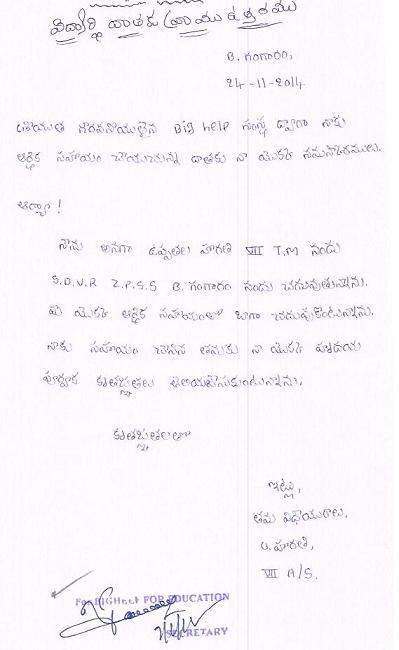 విద్యార్థి దాతకు వ్రాయు ఉత్తరము
B. గంగారం,
24-11-2014
శ్రీయుత గౌరవనీయులైన Big help సంస్థ ద్వారా నాకు
ఆర్థిక సహాయం చేయుచున్న దాతకు నా యొక్క నమస్కారములు.
ఆర్యా !
నేను అనగా ఉప్పతల హారతి VII T.M నందు
S.D.V.R Z.P.S.S B. గంగారం నందు చదువుతున్నాను.
మీ యొక్క ఆర్థిక సహాయంతో బాగా చదువుకొంటున్నాను.
నాకు సహాయం చేసిన తమకు నా యొక్క హృదయ
పూర్వక కృతజ్ఞతలు తెలియజేసుకుంటున్నాను.
కృతజ్ఞతలతో
ఇట్లు,
తమ విధేయురాలు,
ఉ. హారతి,
VII A/S.
For BIGHELP FOR EDUCATION
SECRETARY